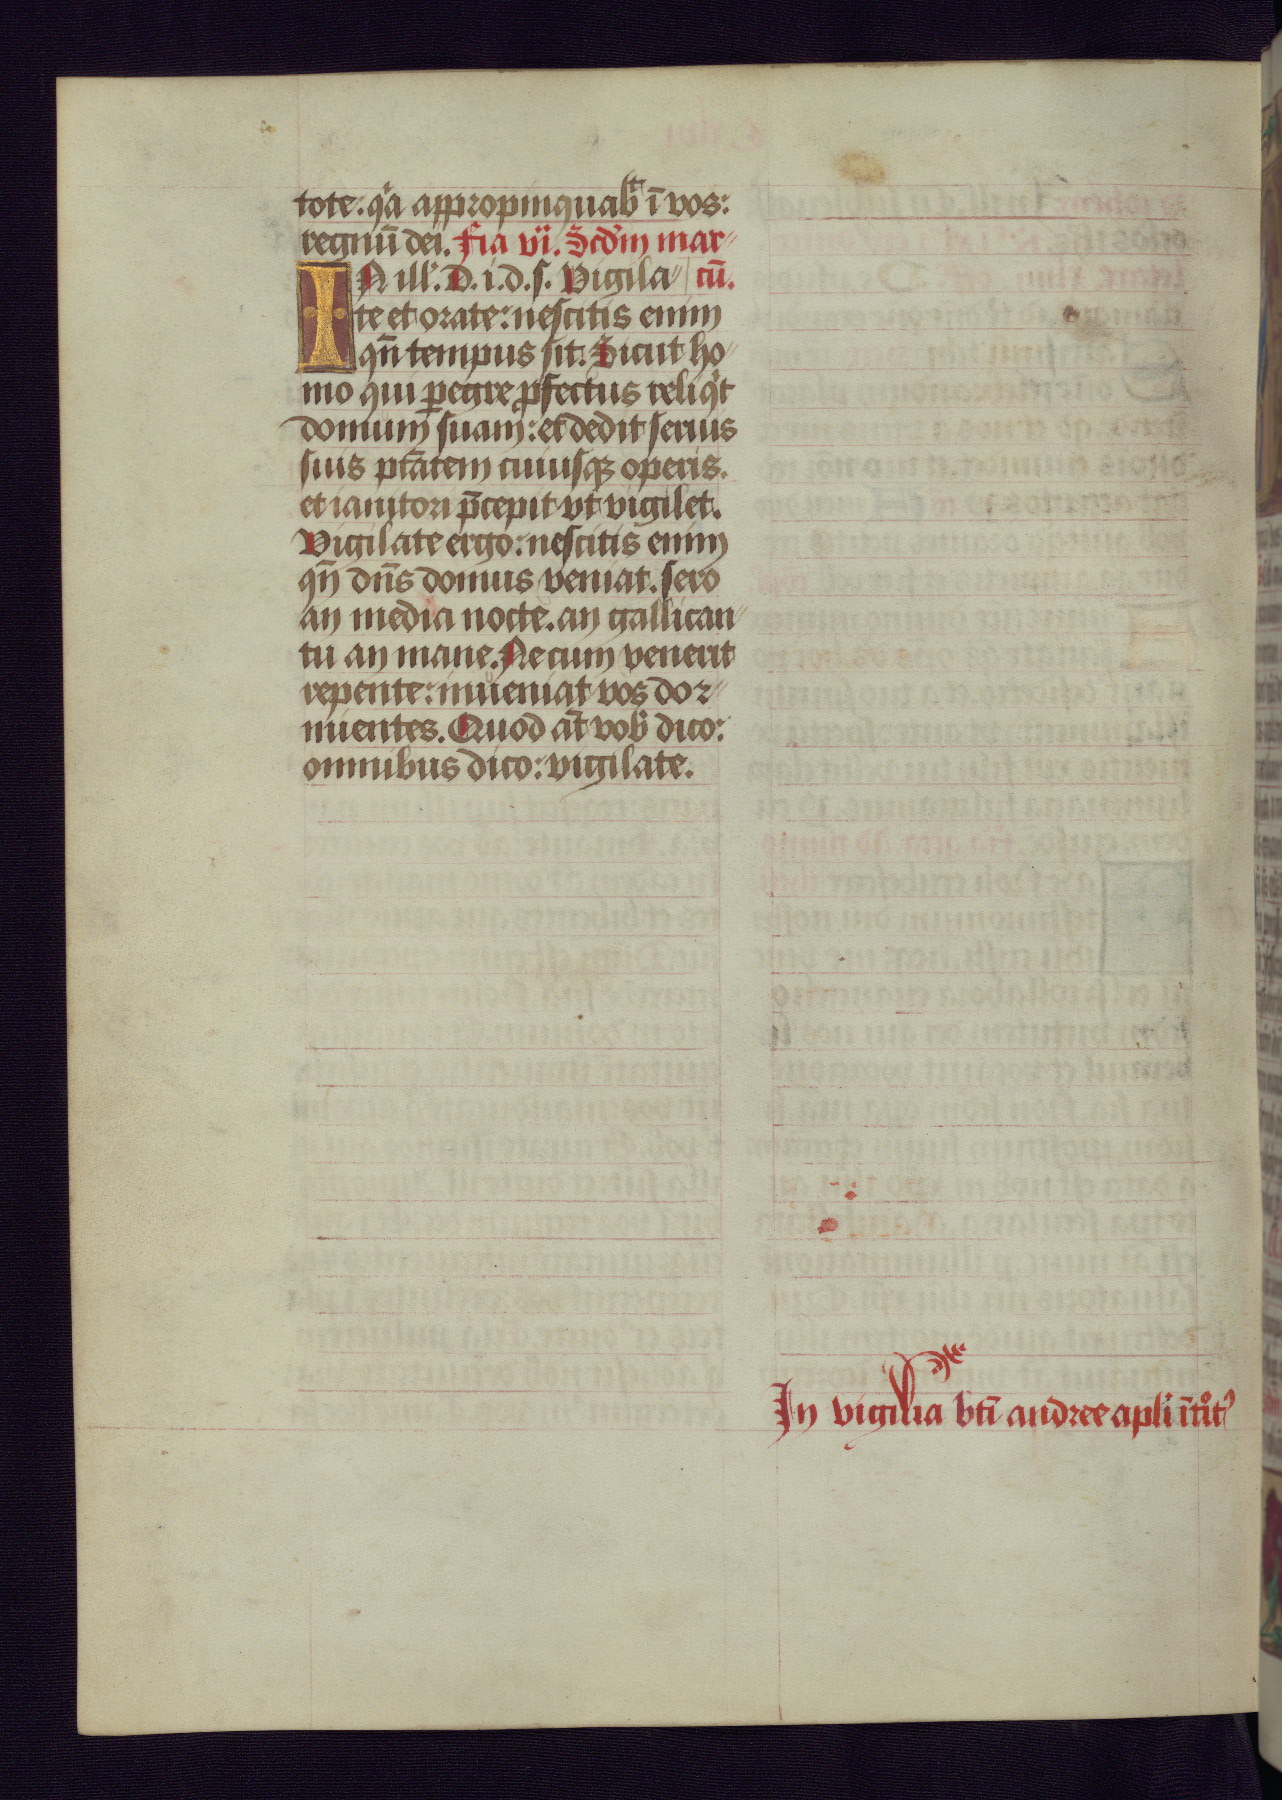 tote: qͥa appropinquabᵗ ī vos:
regnū dei. Fia vi. Scdm mar-
IN ill'. D. i. d. s. Vigila- cū.
te et orate: nescitis enim
qn̄ tempus sit. Sicut ho-
mo qui ꝑegre ꝓfectus reliqͥt
domum suam: et dedit seruis
suis ptātem cuiusqꝫ operis.
et ianitori p̄cepit vt vigilet.
Vigilate ergo: nescitis enim
qn̄ dn̄s domus veniat. sero
an media nocte. an gallican-
tu an mane. Ne cum venerit
repente: inueniat vos dor-
mientes. Quod at̄ vob dico:
omnibus dico: vigilate.
In vigilia bti andree apli ītͦitꝰ